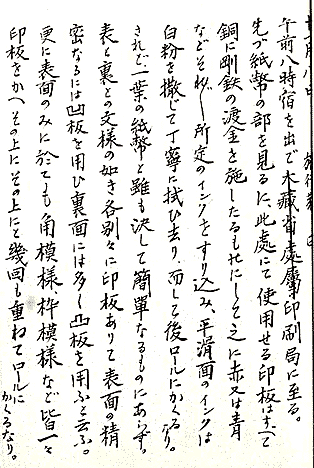 午前八時宿を出で大蔵省處属印刷局に至る。
先づ紙幣の部を見るに、此處にて使用せる印板はすべて
銅に剛鉄の渡金を施したるものにして之に赤又は青
などそれ〲所定のインクをすり込み、平滑面のインクは
白粉を撒じて丁寧に拭ひ去り、而して後ロールにかくるなり。
されば一葉の紙幣と雖も決して簡單なるものにあらず。
表と裏との文様の如き各別々に印板ありて表面の精
密なるには凹板を用ひ裏面には多く凸板を用ふと云ふ。
更に表面のみに於ても角模様枠模様など皆一々
印板をかへその上にその上にと幾回も重ねてロールに
かくるなり。